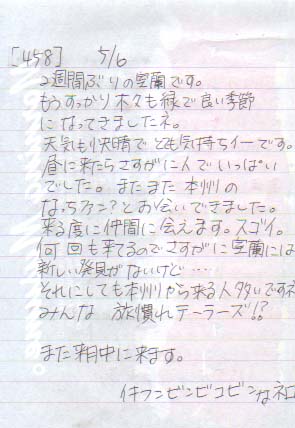 [458] 5/6
2週間ぶりの室蘭です。
もうすっかり木々も緑で良い季節
になってきましたネ。
天気も快晴でとても気持ちイーです。
昼に来たらさすがに人でいっぱい
でした。またまた本州の
なっちファン?とお会いできました。
来る度に仲間に会えます。スゴイ。
何回も来てるのでさすがに室蘭には
新しい発見がないけど…
それにしても本州から来る人多いですネ
みんな 旅慣れテーラーズ!?
また来月中に来ます。